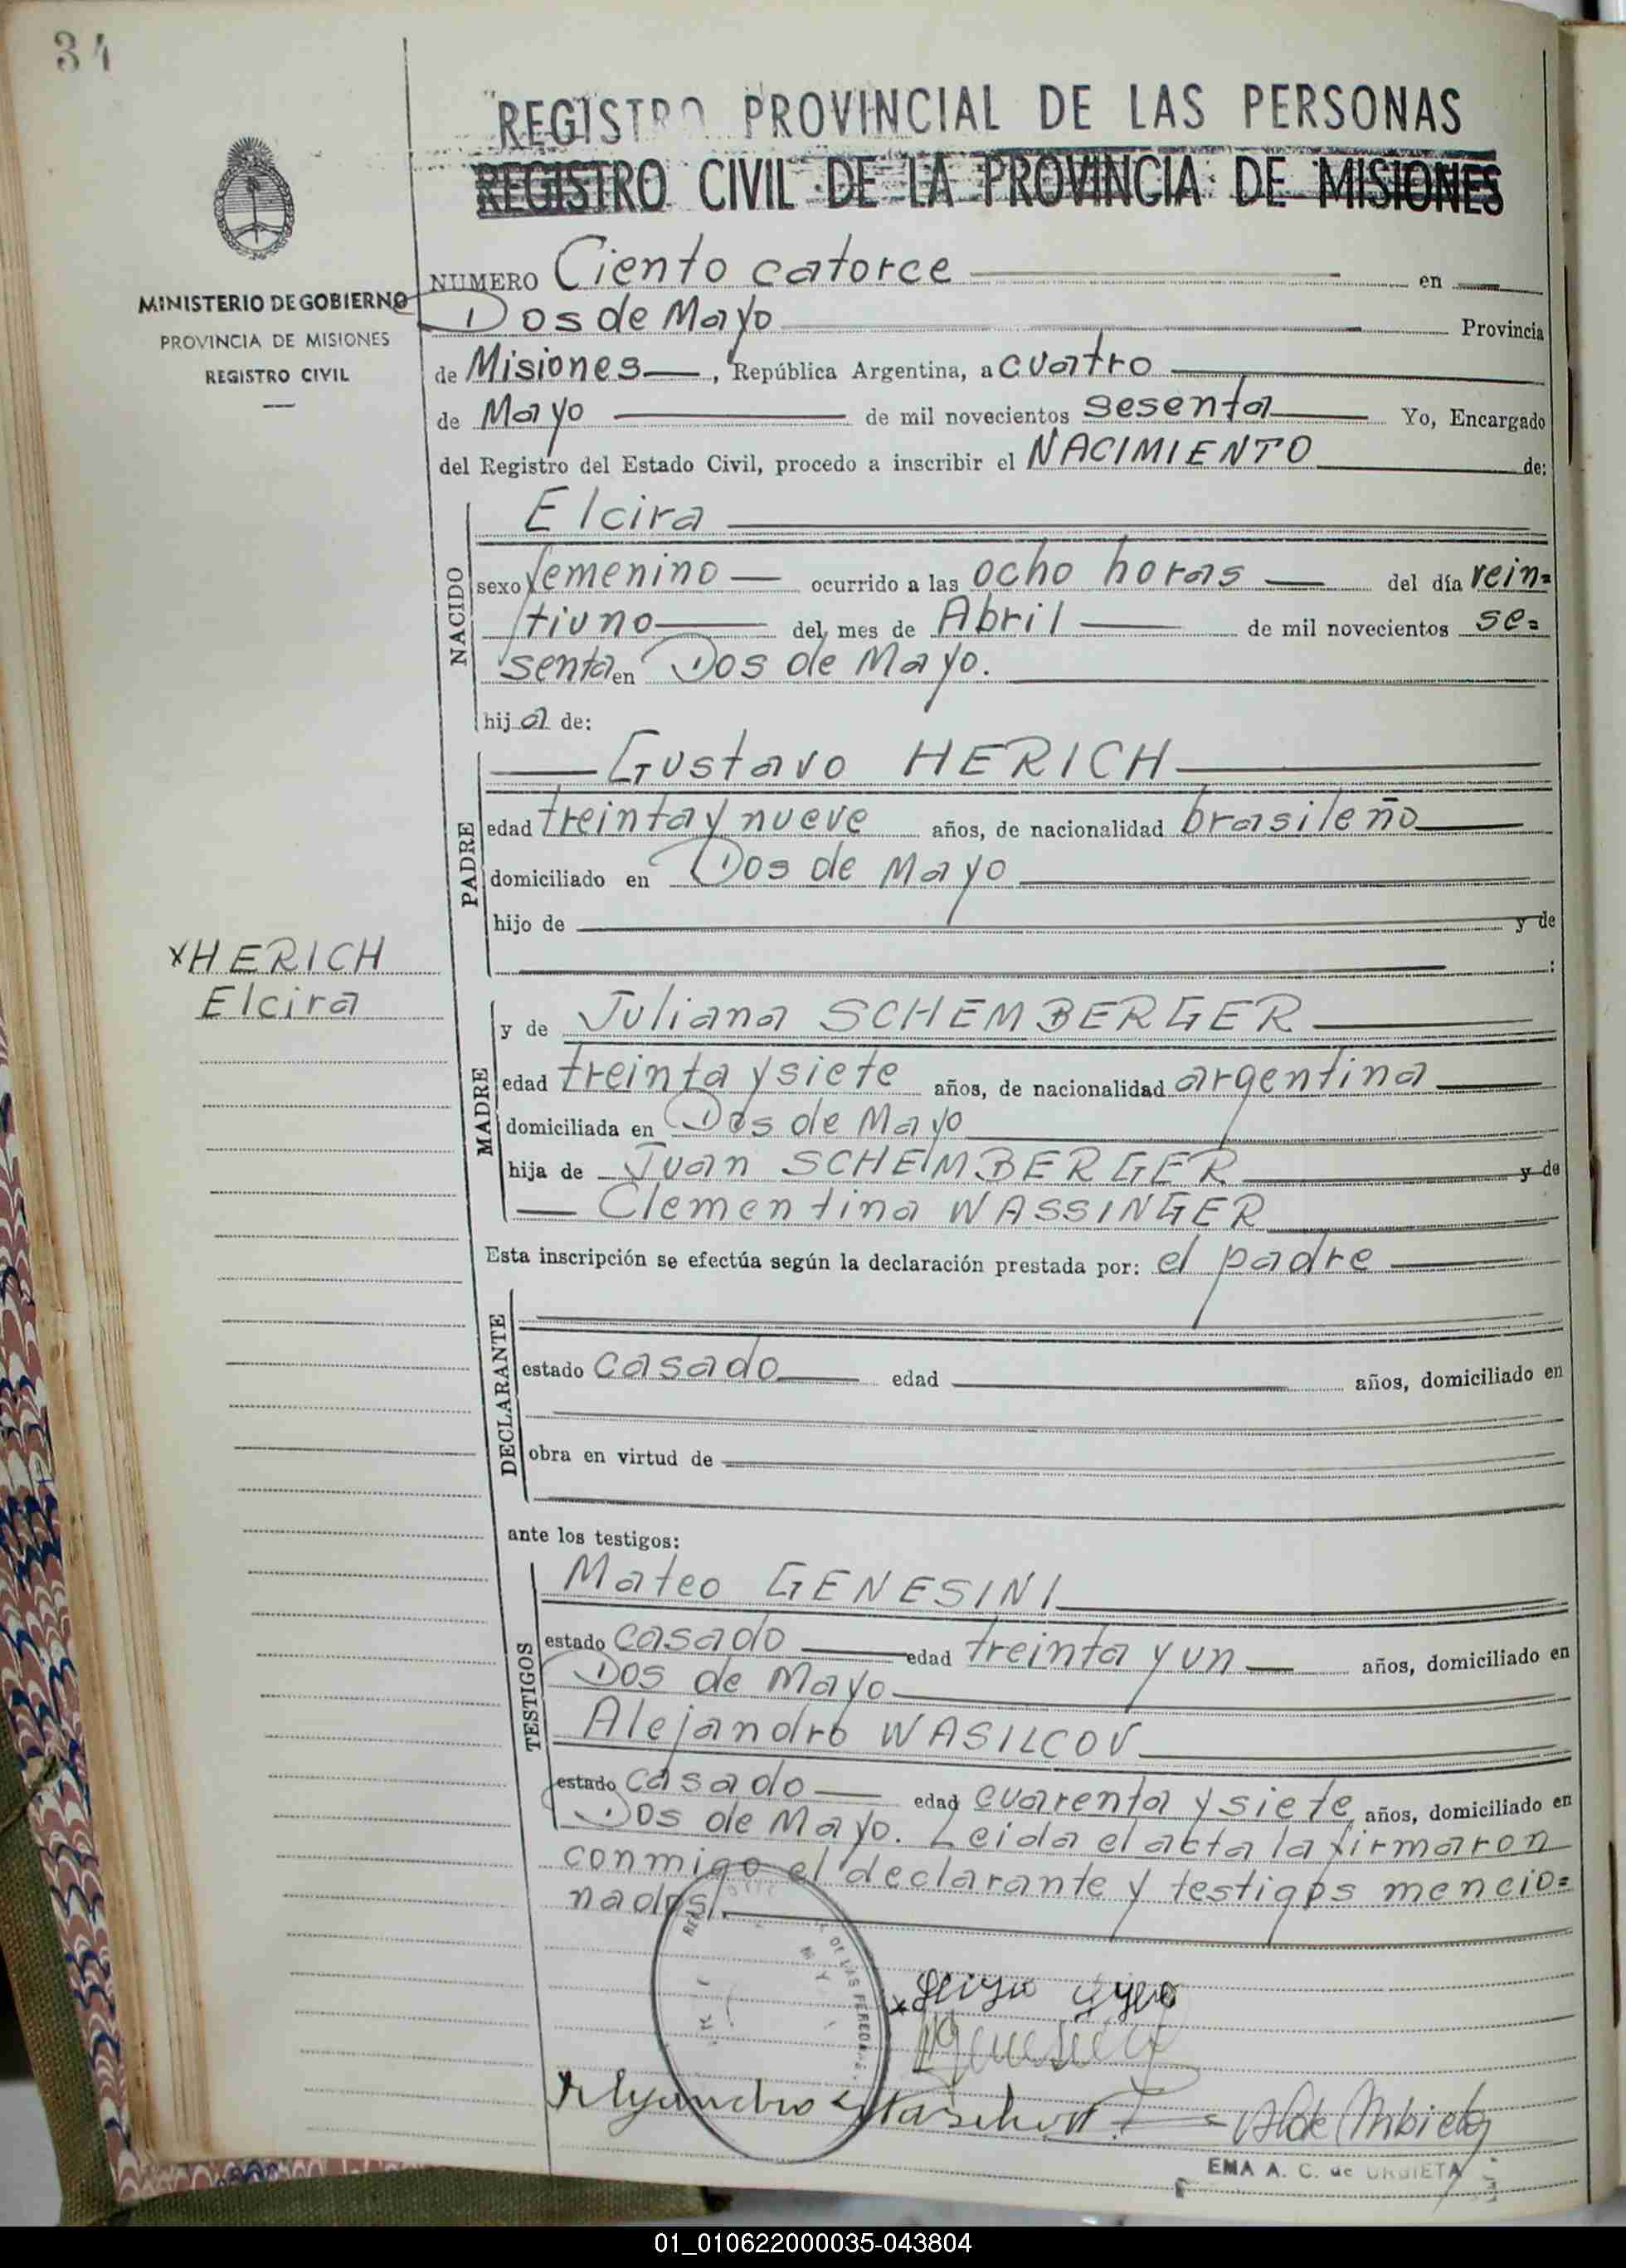 34
REGISTRO PROVINCIAL DE LAS PERSONAS
REGISTRO CIVIL DE LA PROVINCIA DE MISIONES
MINISTERIO DE GOBIERNO
PROVINCIA DE MISIONES
REGISTRO CIVIL
NUMERO Ciento catorce en
Dos de Mayo Provincia
de Misiones, República Argentina, a cuatro
de Mayo de mil novecientos sesenta Yo, Encargado
del Registro del Estado Civil, procedo a inscribir el NACIMIENTO de:
NACIDO
Elcira
sexo femenino ocurrido a las ocho horas del día vein=
tiuno del mes de Abril de mil novecientos se=
senta en Dos de Mayo.
hija de:
PADRE
Gustavo HERICH
edad treinta y nueve años, de nacionalidad brasileño
domiciliado en Dos de Mayo
hijo de y de
:
xHERICH
Elcira
MADRE
y de Juliana SCHEMBERGER
edad treinta y siete años, de nacionalidad argentina
domiciliada en Dos de Mayo
hija de Juan SCHEMBERGER y de
Clementina WASSINGER
Esta inscripción se efectúa según la declaración prestada por: el padre
DECLARANTE
estado casado edad años, domiciliado en
obra en virtud de
ante los testigos:
TESTIGOS
Mateo GENESINI
estado casado edad treinta y un años, domiciliado en
Dos de Mayo
Alejandro WASILCOV
estado casado edad cuarenta y siete años, domiciliado en
Dos de Mayo. Leida el acta la firmaron
conmigo el declarante y testigos mencio=
nados.
EMA A. C. de URBIETA
01_010622000035-043804